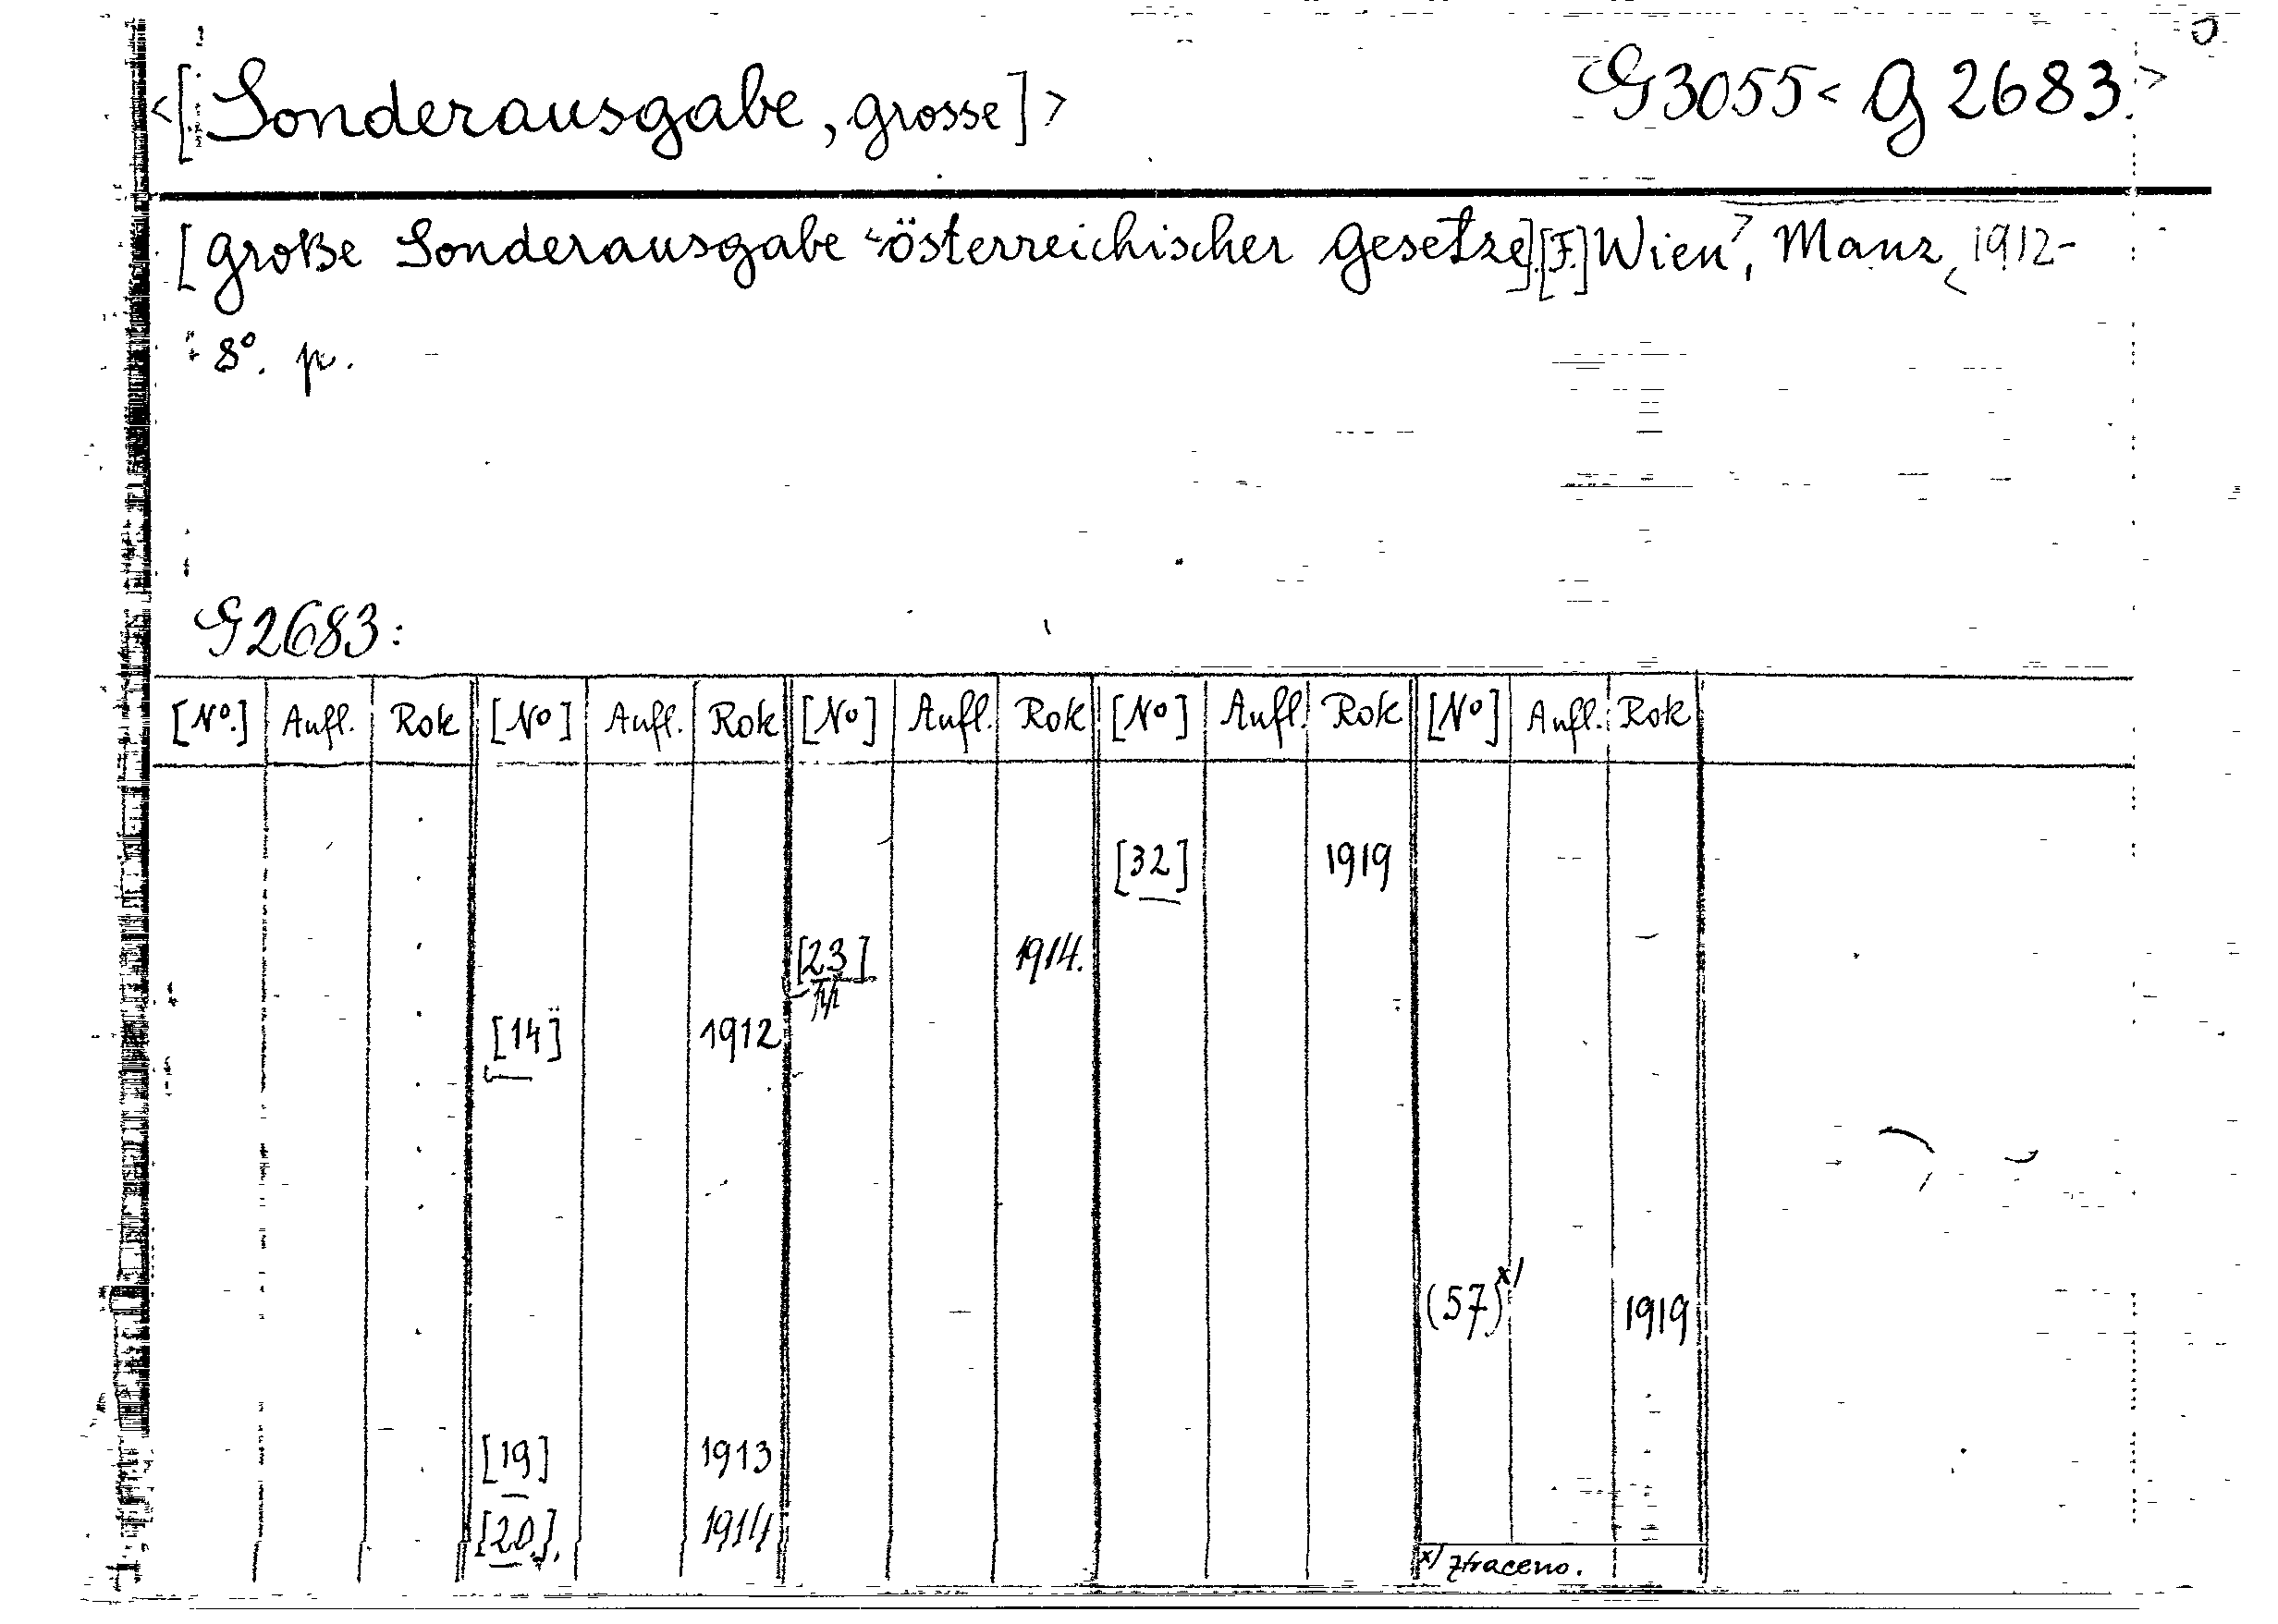 <[Sonderausgabe, grosse]> G3055<G 2683.>
[Große Sonderausgabe <österreichischer Gesetze].[F.] Wien>, Manz, 1912-
8°. p.
G2683:
[No.] Aufl. Rok [No] Aufl. Rok [No] Aufl. Rok [No] Aufl. Rok [No] Aufl. Rok
[32] 1919
[23] 1914.
[14] 1912
(57)x) 1919
[19] 1913
[20.]. 1914
x) Ztraceno.